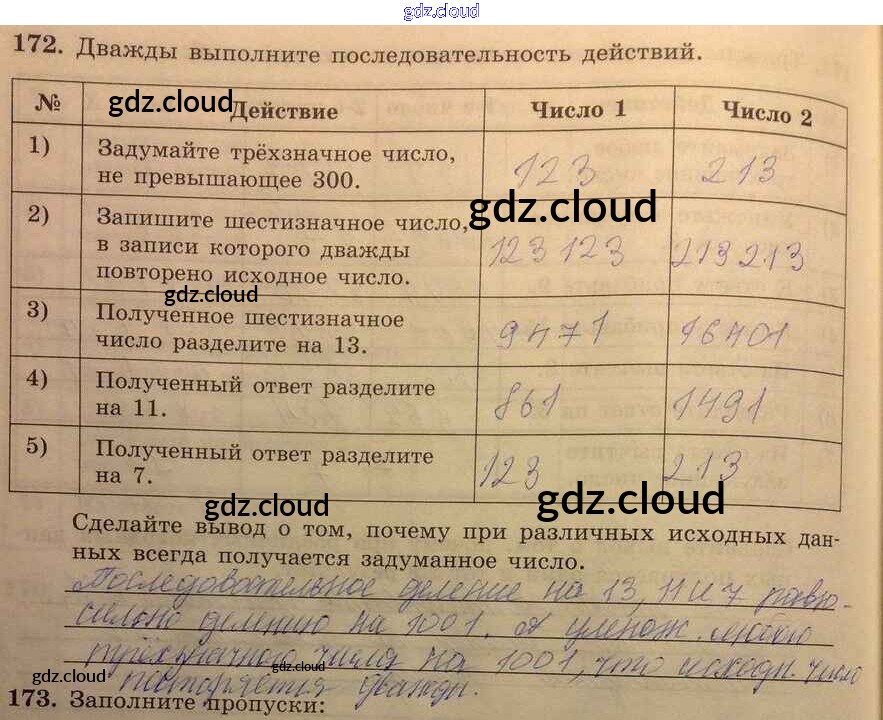 gdz.cloud
172. Дважды выполните последовательность действий.
№ gdz.cloud Действие Число 1 Число 2
1) Задумайте трёхзначное число, 123 213
не превышающее 300.
gdz.cloud
2) Запишите шестизначное число,
в записи которого дважды 123 123 213 213
повторено исходное число.
gdz.cloud
3) Полученное шестизначное 9471 16401
число разделите на 13.
4) Полученный ответ разделите 861 1491
на 11.
5) Полученный ответ разделите 123 213
на 7.
gdz.cloud gdz.cloud
Сделайте вывод о том, почему при различных исходных дан-
ных всегда получается задуманное число.
Последовательное деление на 13, 11 и 7 равно-
сильно делению на 1001. А умнож. любого
трёхзначного числа на 1001, что исходн. число
gdz.cloud gdz.cloud
повторяется дважды.
173. Заполните пропуски: